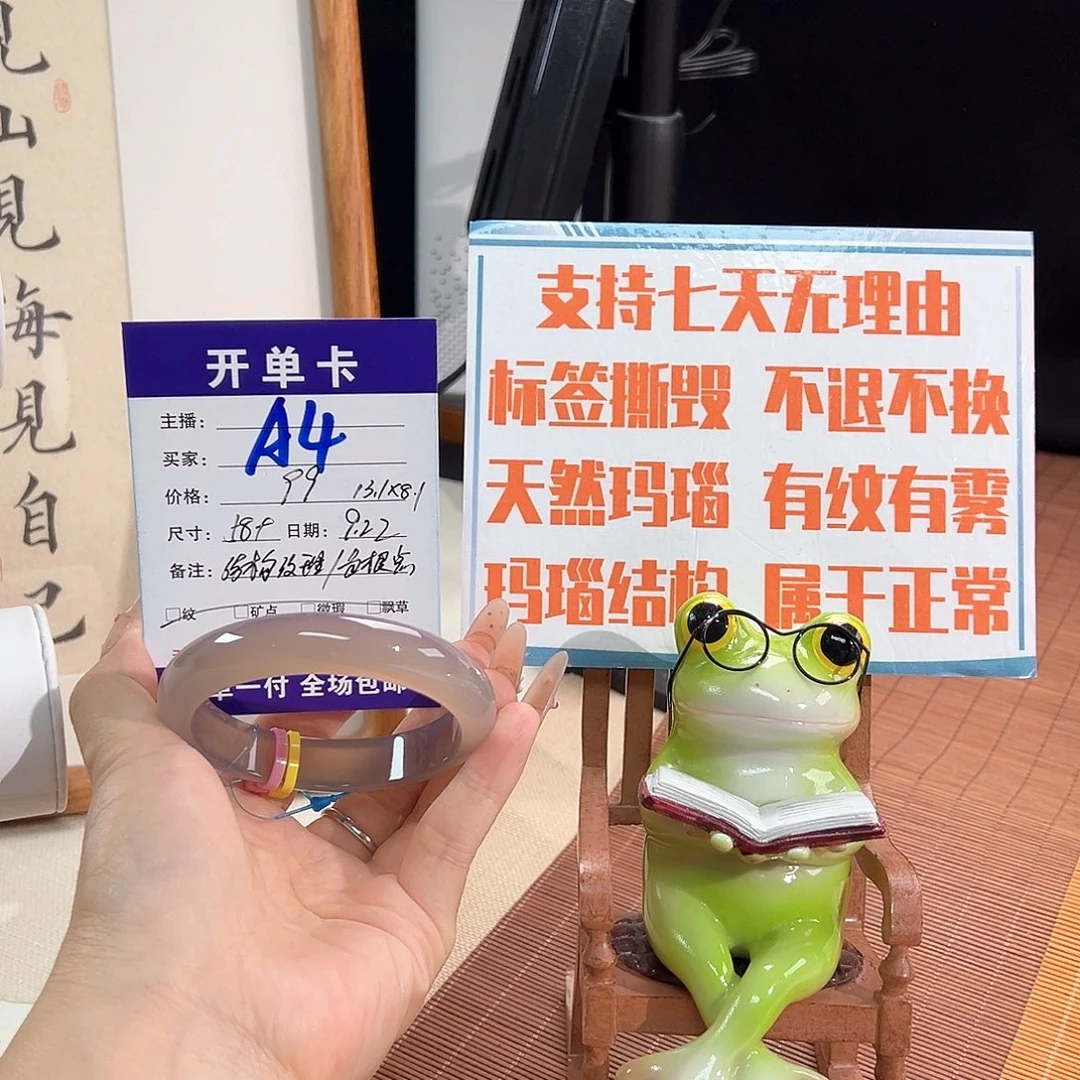 見山見海見自己
开单卡
主播：
A4
买家：
价格：99 13.1×8.1
尺寸：58+ 日期：9.22
备注：结构纹理/有根点
□纹 □矿点 □微瑕 □飘草
单一付 全场包邮
支持七天无理由
标签撕毁 不退不换
天然玛瑙 有纹有雾
玛瑙结构 属于正常